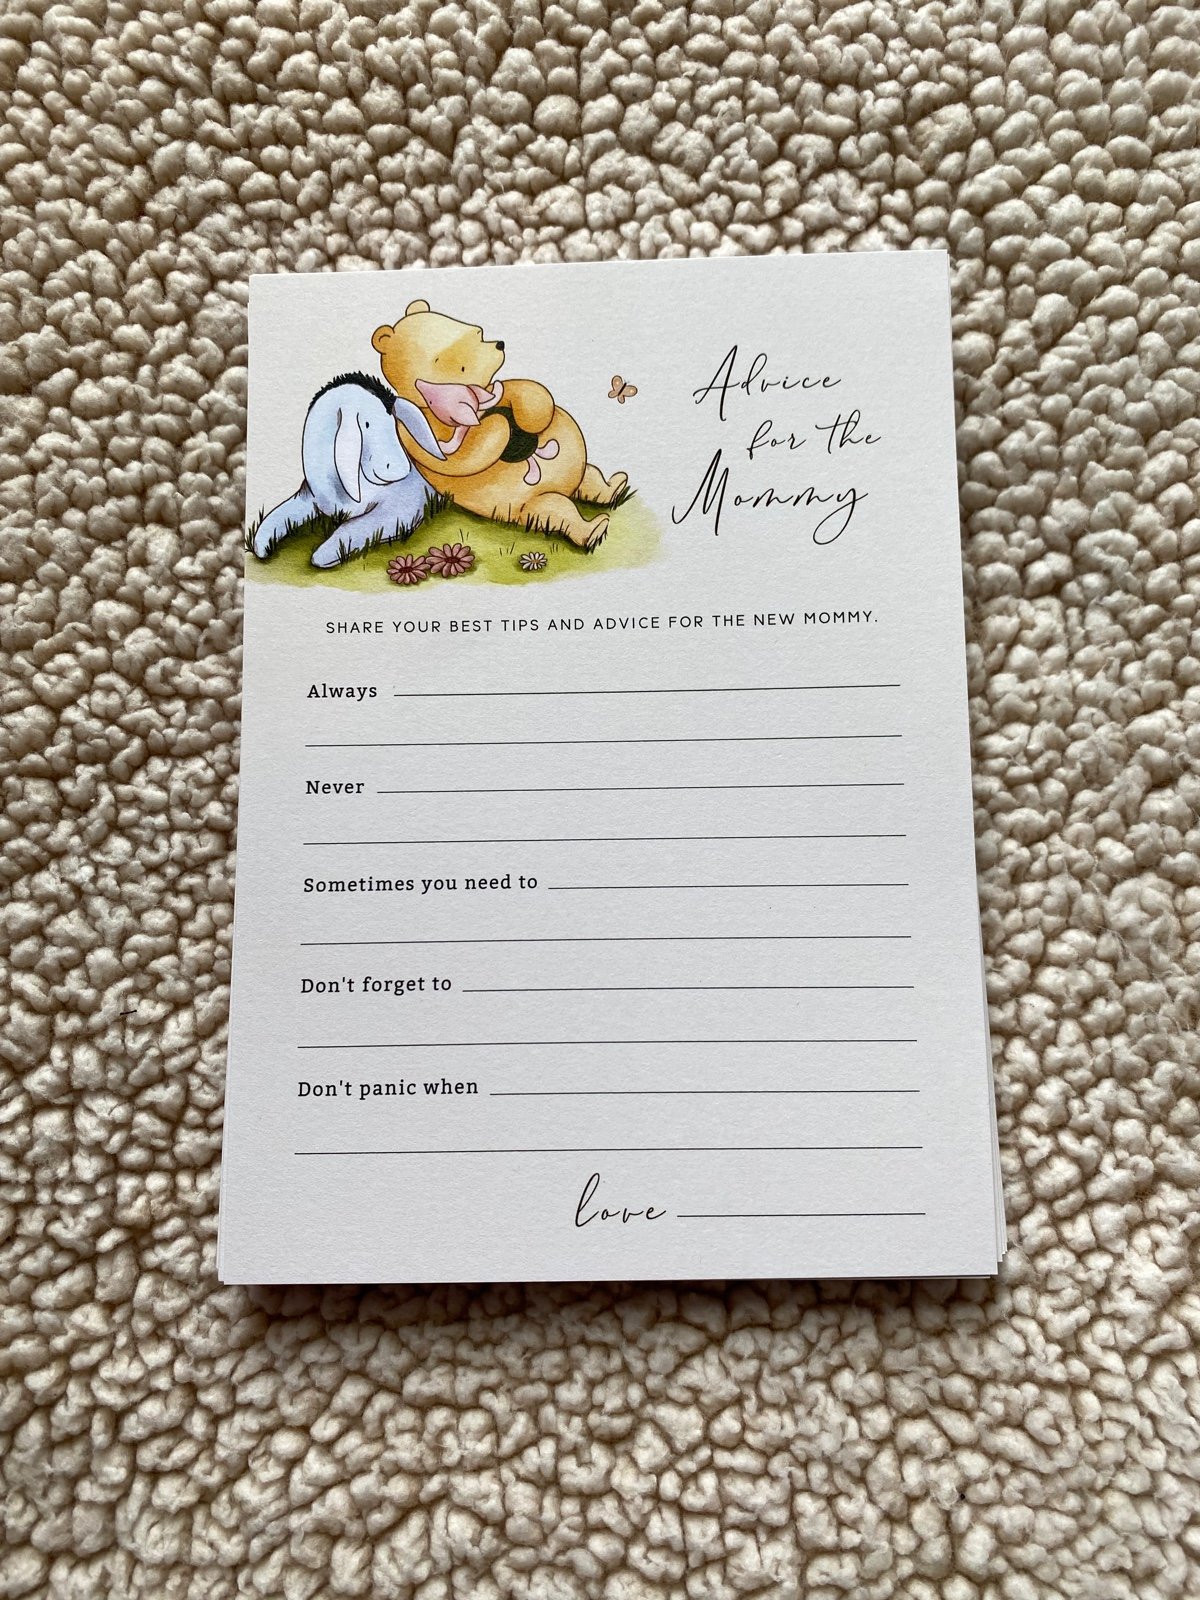 Advice
for the
Mommy
SHARE YOUR BEST TIPS AND ADVICE FOR THE NEW MOMMY.
Always
Never
Sometimes you need to
Don't forget to
Don't panic when
love